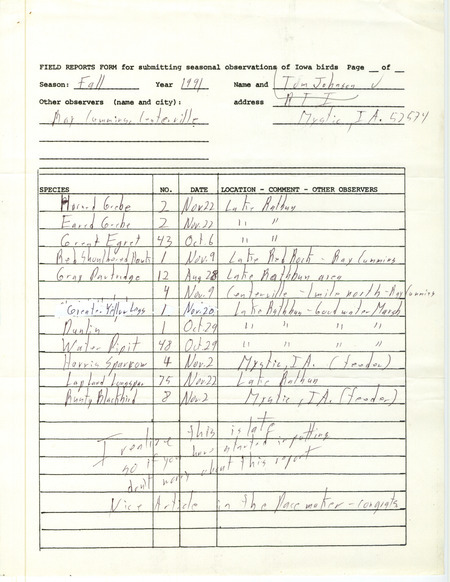 FIELD REPORTS FORM for submitting seasonal observations of Iowa birds Page __ of __
Season: Fall Year 1991 Name and Tom Johnson
Other observers (name and city): address R I
Ray Cummins, Centerville Mystic, IA. 52574
SPECIES NO. DATE LOCATION - COMMENT - OTHER OBSERVERS
Horned Grebe 2 Nov 22 Lake Rathbun
Eared Grebe 2 Nov. 22 " "
Great Egret 43 Oct. 6 " "
Red Shouldered Hawk 1 Nov. 9 Lake Red Rock - Ray Cummins
Gray Partridge 12 Aug 28 Lake Rathbun area
4 Nov. 9 Centerville - 1 mile north - Ray Cummins
Greater Yellow Legs 1 Nov 20 Lake Rathbun - Goodwater Marsh
Dunlin 1 Oct 29 " " " "
Water Pipit 48 Oct 29 " " " "
Harris Sparrow 4 Nov. 2 Mystic, IA. (feeder)
Lapland Longspur 75 Nov 22 Lake Rathbun
Rusty Blackbird 8 Nov. 2 Mystic, IA. (feeder)
I realize this is late
so if you have started inputting
don't worry about this report
Nice Article in the Pacemaker - congrats